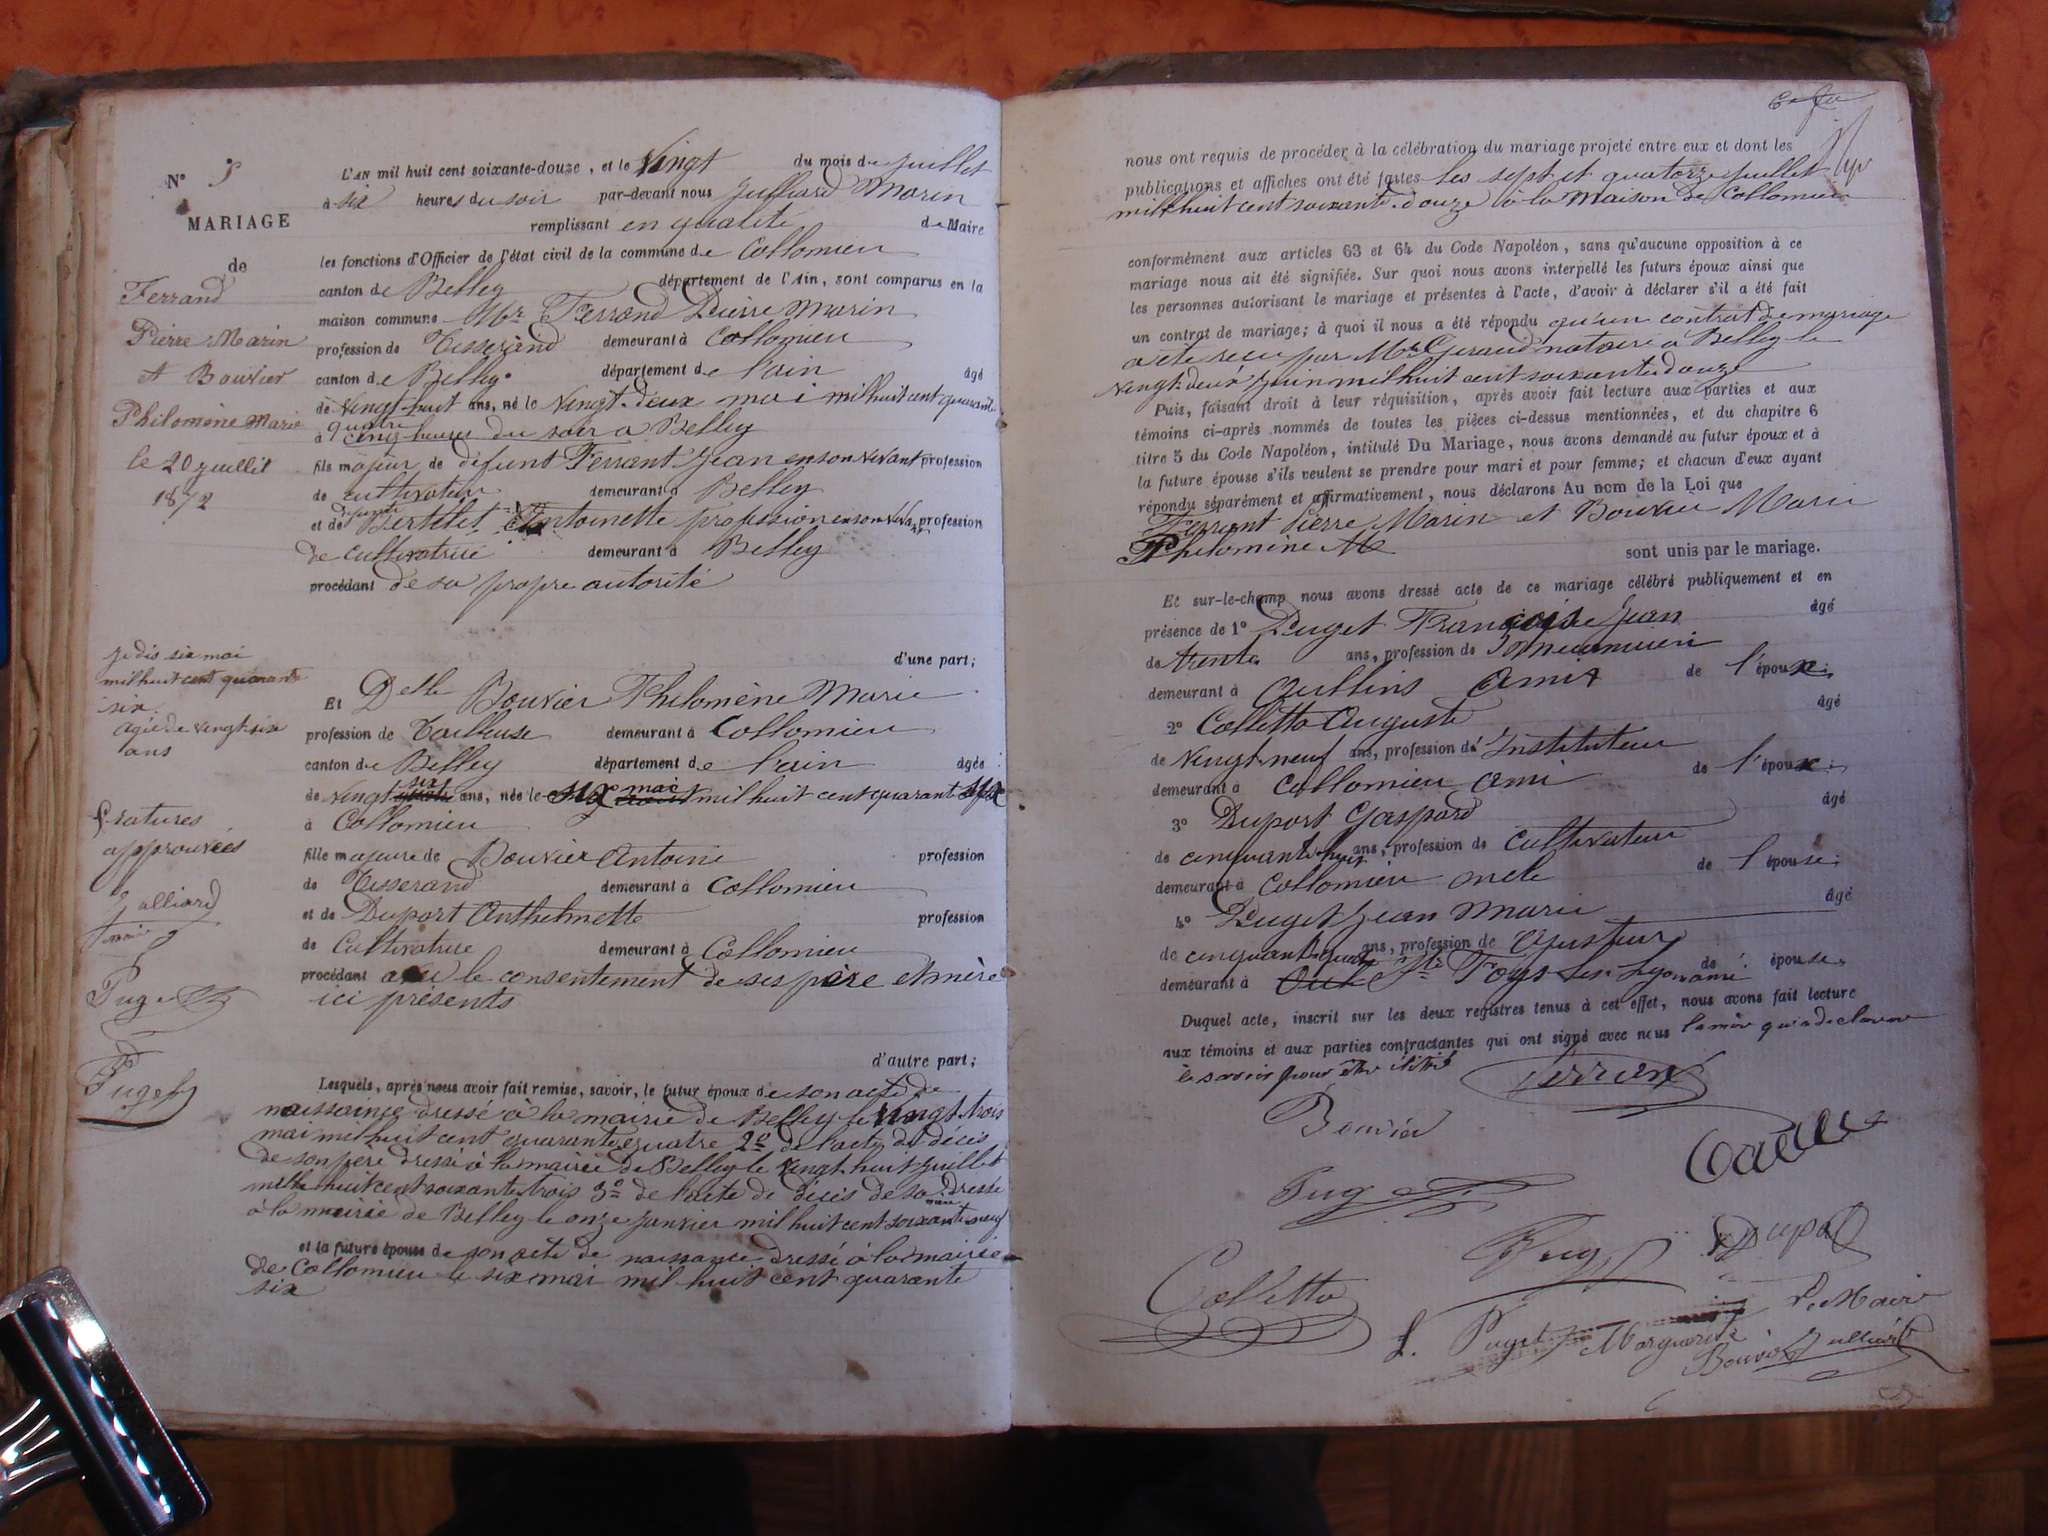 N° 5
MARIAGE
de
Ferrand
Pierre Marin
et Bouvier
Philomène Marie
le 20 juillet
1872
je dis six mai
mil huit cent quarante
six.
agée de vingt six
ans
ratures
approuvées
Julliard
Puget
Puget
L'AN mil huit cent soixante-douze, et le vingt du mois de juillet
à six heures du soir par-devant nous Julliard Marin
remplissant en qualité de Maire
les fonctions d'Officier de l'état civil de la commune de Collomieu
canton de Belley département de l'Ain, sont comparus en la
maison commune Mr Ferrand Pierre Marin
profession de Tisserand demeurant à Collomieu
canton de Belley département de l'ain âgé
de vingt-huit ans, né le vingt-deux mai mil huit cent quarante
quatre
à cinq heures du soir a Belley
fils majeur de défunt Ferrant Jean en son vivant profession
de cultivateur demeurant à Belley
et de défunte Bertelet Antoinette profession en son viva profession
de cultivatrice demeurant à Belley
procédant de sa propre autorité
d'une part;
Et Delle Bouvier Philomène Marie
profession de Tailleuse demeurant à Collomieu
canton de Belley département de l'ain âgée
de vingt six ans, née le six mai mil huit cent quarante six
à Collomieu
fille majeure de Bouvier Antoine profession
de Tisserand demeurant à Collomieu
et de Duport Anthelmette profession
de Cultivatrice demeurant à Collomieu
procédant avec le consentement de ses père et mère
ici présents
d'autre part;
Lesquels, après nous avoir fait remise, savoir, le futur époux de son acte de
naissance dressé à la mairie de Belley le vingt trois
mai mil huit cent quarante quatre 2° de l'acte de décès
de son père dressé à la mairie de Belley le vingt huit juillet
mille huit cent soixante trois 3° de l'acte de décès de sa mère dressé
à la mairie de Belley le onze janvier mil huit cent soixante neuf
et la future épouse de son acte de naissance dressé à la mairie
de Collomieu le six mai mil huit cent quarante
six
nous ont requis de procéder à la célébration du mariage projeté entre eux et dont les
publications et affiches ont été faites les sept et quatorze juillet
mil huit cent soixante-douze à la Maison de Collomieu
conformément aux articles 63 et 64 du Code Napoléon, sans qu'aucune opposition à ce
mariage nous ait été signifiée. Sur quoi nous avons interpellé les futurs époux ainsi que
les personnes autorisant le mariage et présentes à l'acte, d'avoir à déclarer s'il a été fait
un contrat de mariage; à quoi il nous a été répondu qu'un contrat de mariage
a été reçu par Me Geraud notaire a Belley le
vingt-deux Juin mil huit cent soixante douze
Puis, faisant droit à leur réquisition, après avoir fait lecture aux parties et aux
témoins ci-après nommés de toutes les pièces ci-dessus mentionnées, et du chapitre 6
titre 5 du Code Napoléon, intitulé Du Mariage, nous avons demandé au futur époux et à
la future épouse s'ils veulent se prendre pour mari et pour femme; et chacun d'eux ayant
répondu séparément et affirmativement, nous déclarons Au nom de la Loi que
Ferrant Pierre Marin et Bouvier Marie
Philomène sont unis par le mariage.
Et sur-le-champ nous avons dressé acte de ce mariage célébré publiquement et en
présence de 1° Puget François Jean âgé
de trente ans, profession de
demeurant à Oullins Ami de l'épouse.
2° Colletta Auguste âgé
de vingt neuf ans, profession de Instituteur
demeurant à Collomieu ami de l'épouse.
3° Duport Gaspard âgé
de cinquante-huit ans, profession de cultivateur
demeurant à Collomieu oncle de l'épouse;
4° Puget Jean Marie âgé
de cinquante quatre ans, profession de ajusteur
demeurant à Oul Ste Foys les Lyon ami de épouse.
Duquel acte, inscrit sur les deux registres tenus à cet effet, nous avons fait lecture
aux témoins et aux parties contractantes qui ont signé avec nous
Ferrand
Bouvier
Puget
Puget
Duport
Colletta
Puget
Marguerite
Le Maire
Bouvier
Julliard